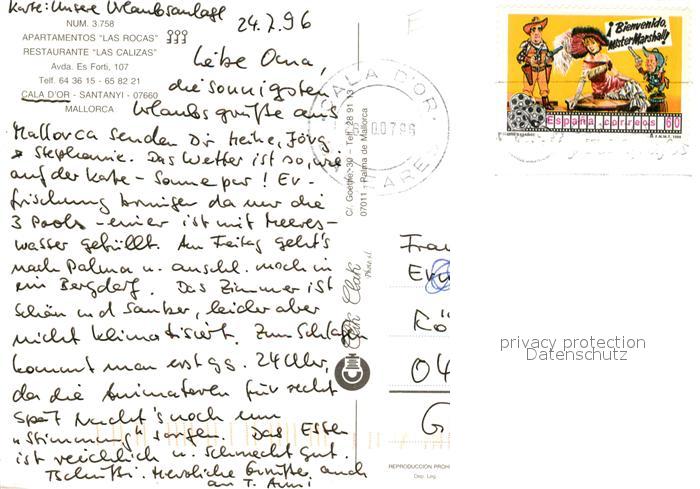 Karte: Unsere Urlaubsanlage
24.7.96
NUM. 3.758
APARTAMENTOS "LAS ROCAS"
RESTAURANTE "LAS CALIZAS"
Avda. Es Forti, 107
Telf. 64 36 15 - 65 82 21
CALA D'OR - SANTANYI - 07660
MALLORCA
Liebe Oma,
die sonnigsten
Urlaubsgrüße aus
Mallorca senden Dir Heike, Jörg
+ Stephanie. Das Wetter ist so wie
auf der Karte - Sonne pur! Er-
frischung bringen da nur die
3 Pools - einer ist mit Meeres-
wasser gefüllt. Am Freitag geht's
nach Palma u. anschl. noch in
ein Bergdorf. Das Zimmer ist
schön und sauber, leider aber
nicht klimatisiert. Zum Schlafen
kommt man erst gg. 24 Uhr,
da die Animateure für recht
spät nachts noch um
"Stimmung" sorgen. Das Essen
ist reichlich u. schmeckt gut.
Tschüßi. Herzliche Grüße, auch
an T.
CALA D'OR
BALEARES
C/. Goethe, 30 - Telf. 28 91 13
07011 - Palma de Mallorca
Clik Clak
REPRODUCCION PROH
Dep. Leg.
F
Frau
Er
Rö
04
G
¡Bienvenido,
Mister Marshall!
España correos 60
F.N.M.T. 1996
privacy protection
Datenschutz